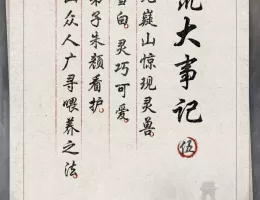 大事记 伍
嶷山惊现灵兽
白，灵巧可爱。
弟子朱颜看护。
众人广寻喂养之法。